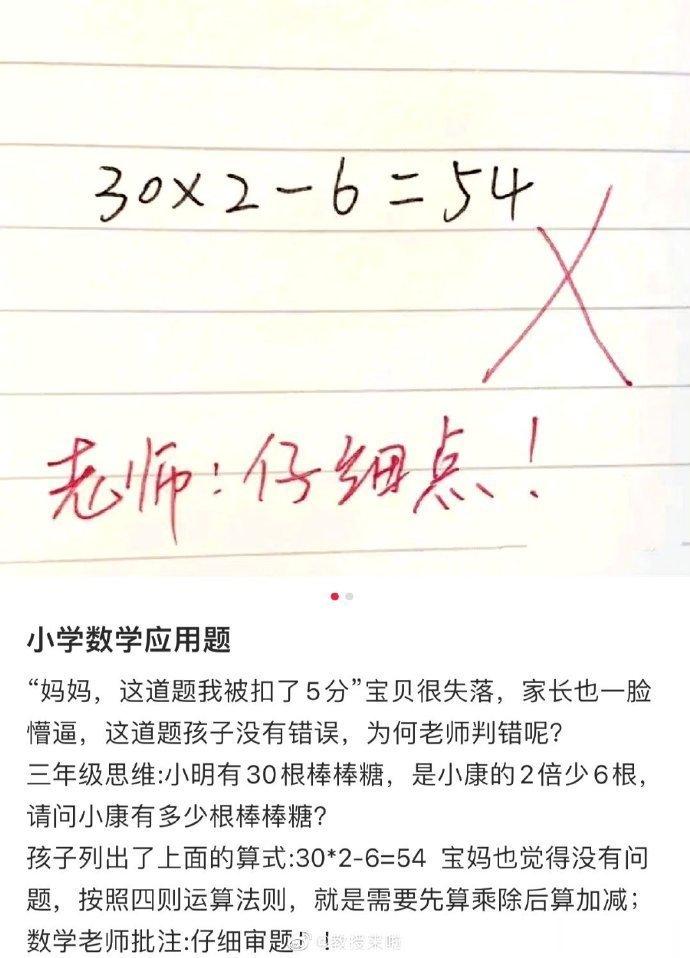 30×2-6=54
老师:仔细点!
小学数学应用题
“妈妈，这道题我被扣了5分”宝贝很失落，家长也一脸
懵逼，这道题孩子没有错误，为何老师判错呢?
三年级思维:小明有30根棒棒糖，是小康的2倍少6根，
请问小康有多少根棒棒糖?
孩子列出了上面的算式:30*2-6=54 宝妈也觉得没有问
题，按照四则运算法则，就是需要先算乘除后算加减；
数学老师批注:仔细审题！！